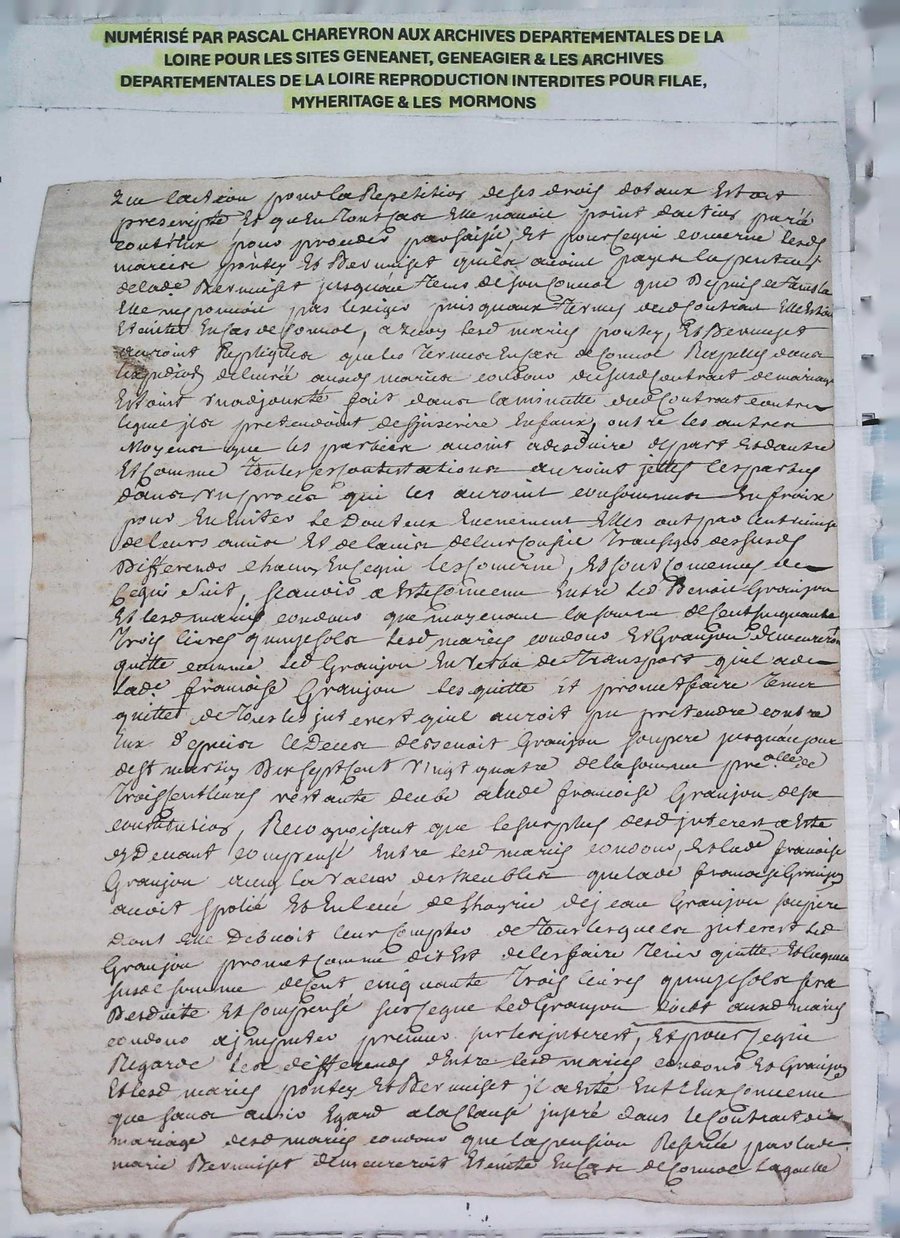 NUMÉRISÉ PAR PASCAL CHAREYRON AUX ARCHIVES DEPARTEMENTALES DE LA
LOIRE POUR LES SITES GENEANET, GENEAGIER & LES ARCHIVES
DEPARTEMENTALES DE LA LOIRE REPRODUCTION INTERDITES POUR FILAE,
MYHERITAGE & LES MORMONS
que laction pour la Repetition de ses drois dotaux Estoit
prescripte Et quen tout cas Elle navoit point daction parée
contreux pour proceder par saisie, Et pour ce qui concerne lesds
mariés pontey Et Bermiset quils avoint payé la pention
de lade Bermiset jusquau tems de son convol que Depuis ce tems la
Elle ne pouvoit pas lexiger puisquaux termes dud Contrat Elle Estoit
Eteinte En cas de Convol, a quoy lesd mariés pontey, Et Bermiset
auroint Repliqués que les termes En cas de Convol Rapellés dans
lexpedion delivrée ausds mariés coudour du susd Contrat de mariage
Estoint un adjouté fait dans la minutte dud Contrat contre
lequel ils pretendoint se inscrire En faux, outre les autres
Moyens que les parties avoint a desduire de part Et dautre
Et Comme toutes ces contestations auroint jettés les parties
dans un procés qui les auroint consommés En fraix
pour En Eviter le Douteux Evenement Elles ont par lentremise
de leurs amis Et de lavis de leur Conseil transigés desusds
Differends chacun En ce qui les concerne, Et sont convenus de
ce qui suit, scavoir a Esté convenu Entre led Benoit Granjon
Et lesd mariés coudour que moyenant la somme de Cent cinquante
trois livres quinze sols lesd mariés coudour Et Granjon demeureront
quitte comme led Granjon En vertu de transport quil a de
lade francoise Granjon les quitte et promet faire tenir
quittes de tous les jnterest quil auroit pu pretendre contre
Eux Depuis le Deces de Benoit Granjon son pere jusquau jour
de st martin Dix sept Cent vingt quatre de la somme pre alle de
trois cent livres restante deube a lade francoise Granjon de sa
constitution, Recognoissant que le surplus desd jnterest a Esté
cy Devant compensé Entre lesd mariés coudour, Et lade francoise
Granjon avec la valeur des Meubles que lade francoise Granjon
avoit spolié Et Enlevé de lhoyrie de jean Granjon son pere
Dont Elle Debvoit leur Compter de tous lesquels jnterest led
Granjon promet Comme dit Est de les faire tenir quitte Et laquelle
susde somme de Cent cinquante trois livres quinze sols sera
Desduite Et Compensé sur ce que led Granjon doibt ausd mariés
coudour a jmputer premier sur les jnterest, Et pour ce qui
Regarde les differends Dentre lesd mariés coudour Et Granjon
Et lesd mariés pontey Et Bermiset jl a Esté Entreux convenu
que sans avoir Egard a la Clause jnseré dans le Contrat de
mariage desd mariés coudour que la pension Reservée par lade
marie Bermiset demeureroit Eteinte En Cas de Convol